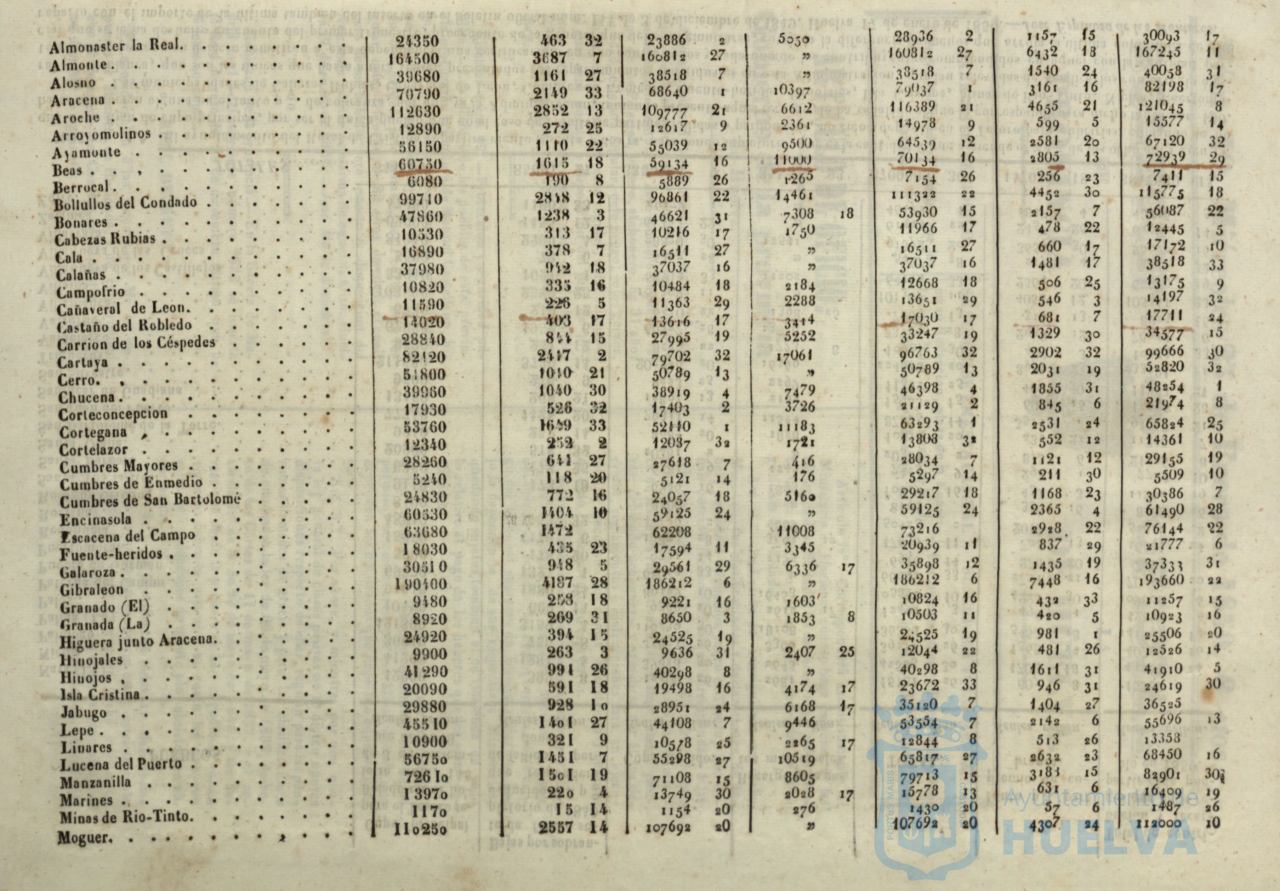 Almonaster la Real. 24350 463 32 23886 2 5050 28936 2 1157 15 30093 17
Almonte. 164500 3687 7 160812 27 » 160812 27 6432 18 167245 11
Alosno 39680 1161 27 38518 7 » 38518 7 1540 24 40058 31
Aracena 70790 2149 33 68640 1 10397 79037 1 3161 16 82198 17
Aroche 112630 2852 13 109777 21 6612 116389 21 4655 21 121045 8
Arroyomolinos 12890 272 25 12617 9 2361 14978 9 599 5 15577 14
Ayamonte 56150 1110 22 55039 12 9500 64539 12 2581 20 67120 32
Beas 60750 1615 18 59134 16 11000 70134 16 2805 13 72939 29
Berrocal 6080 190 8 5889 26 1265 7154 26 256 23 7411 15
Bollullos del Condado 99710 2848 12 96861 22 14461 111322 22 4452 30 115775 18
Bonares 47860 1238 3 46621 31 7308 18 53930 15 2157 7 56087 22
Cabezas Rubias 10530 313 17 10216 17 1750 11966 17 478 22 12445 5
Cala 16890 378 7 16511 27 » 16511 27 660 17 17172 10
Calañas 37980 942 18 37037 16 » 37037 16 1481 17 38518 33
Campofrio 10820 335 16 10484 18 2184 12668 18 506 25 13175 9
Cañaveral de Leon. 11590 226 5 11363 29 2288 13651 29 546 3 14197 32
Castaño del Robledo 14020 403 17 13616 17 3414 17030 17 681 7 17711 24
Carrion de los Céspedes 28840 844 15 27995 19 5252 33247 19 1329 30 34577 15
Cartaya 82120 2417 2 79702 32 17061 96763 32 2902 32 99666 30
Cerro. 51800 1010 21 50789 13 » 50789 13 2031 19 52820 32
Chucena 39960 1040 30 38919 4 7479 46398 4 1855 31 48254 1
Corteconcepcion 17930 526 32 17403 2 3726 21129 2 845 6 21974 8
Cortegana 53760 1649 33 52110 1 11183 63293 1 2531 24 65824 25
Cortelazor 12340 252 2 12087 32 1721 13808 32 552 12 14361 10
Cumbres Mayores 28260 641 27 27618 7 416 28034 7 1121 12 29155 19
Cumbres de Enmedio 5240 118 20 5121 14 176 5297 14 211 30 5509 10
Cumbres de San Bartolomé 24830 772 16 24057 18 5160 29217 18 1168 23 30386 7
Encinasola 60530 1404 10 59125 24 » 59125 24 2365 4 61490 28
Escacena del Campo 63680 1472 62208 11008 73216 2928 22 76144 22
Fuente-heridos 18030 435 23 17594 11 3345 20939 11 837 29 21777 6
Galaroza 30510 948 5 29561 29 6336 17 35898 12 1435 19 37333 31
Gibraleon 190400 4187 28 186212 6 » 186212 6 7448 16 193660 22
Granado (El) 9480 258 18 9221 16 1603 10824 16 432 33 11257 15
Granada (La) 8920 269 31 8650 3 1853 8 10503 11 420 5 10923 16
Higuera junto Aracena. 24920 394 15 24525 19 » 24525 19 981 1 25506 20
Hinojales 9900 263 3 9636 31 2407 25 12044 22 481 26 12526 14
Hinojos 41290 991 26 40298 8 » 40298 8 1611 31 41910 5
Isla Cristina 20090 591 18 19498 16 4174 17 23672 33 946 31 24619 30
Jabugo 29880 928 10 28951 24 6168 17 35120 7 1404 27 36525
Lepe 45510 1401 27 44108 7 9446 53554 7 2142 6 55696 13
Linares 10900 321 9 10578 25 2265 17 12844 8 513 26 13358
Lucena del Puerto 56750 1451 7 55298 27 10519 65817 27 2632 23 68450 16
Manzanilla 72610 1501 19 71108 15 8605 79713 15 3181 15 82901 30
Marines 13970 220 4 13749 30 2028 17 15778 13 631 6 16409 19
Minas de Rio-Tinto. 1170 15 14 1154 20 276 1430 20 57 6 1487 26
Moguer. 110250 2557 14 107692 20 » 107692 20 4307 24 112000 10
Ayuntamiento de
HUELVA